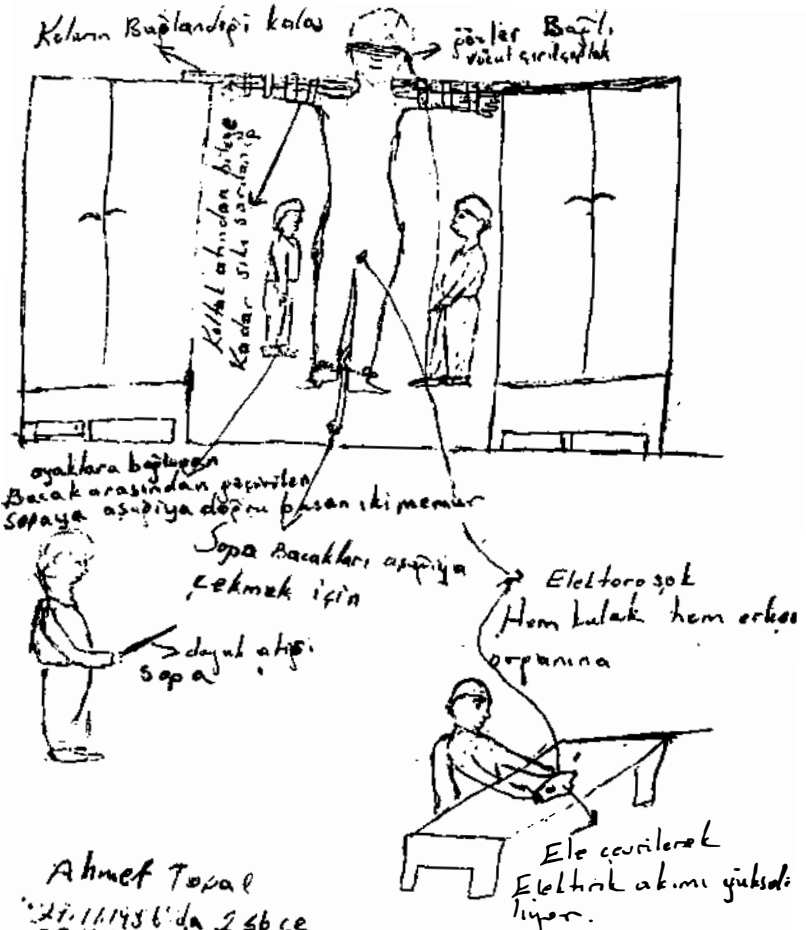 Kolun Bağlandığı kalas
gözler Bağlı
vücut çırılçıplak
Koltuk altından bileğe
Kadar sıkı sarılarış
ayaklara bağlanan
Bacak arasından geçirilen
Sopaya aşağıya doğru basan iki memur
Sopa Bacakları aşağıya
çekmek için
Elektoroşok
Hem kulak hem erkek
organına
dayak atışı
sopa
Ele çevrilerek
Elektirik akımı yükseli
liyor.
Ahmet Topal